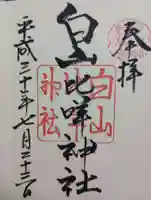 奉拝
白山比咩神社
白山
神社
平成三十年七月二十三日